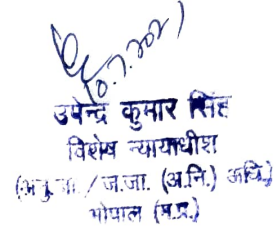 10.7.2021
उपेन्द्र कुमार सिंह
विशेष न्यायाधीश
/ ज.जा. (अ.नि.) अधि.)
भोपाल (म.प्र.)